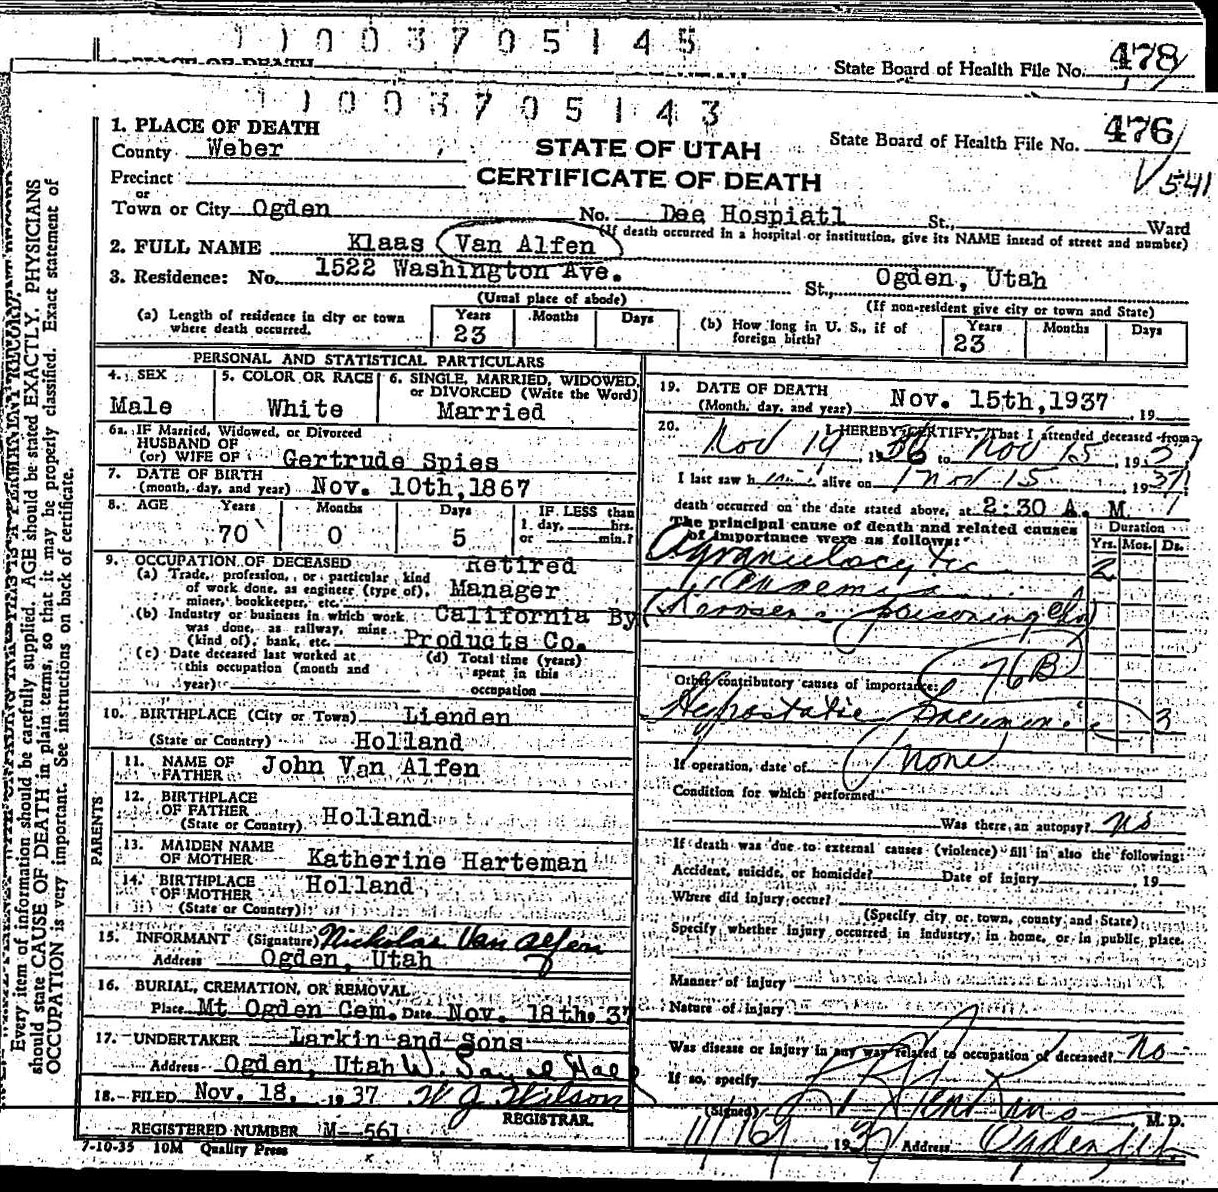 11003705145
State Board of Health File No. 478
11003705143
1. PLACE OF DEATH
County Weber
STATE OF UTAH
State Board of Health File No. 476
CERTIFICATE OF DEATH
V 541
Precinct
or
Town or City Ogden No. Dee Hospiatl St., Ward
(If death occurred in a hospital or institution, give its NAME instead of street and number)
2. FULL NAME Klaas Van Alfen
3. Residence: No. 1522 Washington Ave. St., Ogden, Utah
(Usual place of abode) (If non-resident give city or town and State)
(a) Length of residence in city or town where death occurred. Years 23 Months Days
(b) How long in U. S., if of foreign birth? Years 23 Months Days
PERSONAL AND STATISTICAL PARTICULARS
4. SEX Male
5. COLOR OR RACE White
6. SINGLE, MARRIED, WIDOWED, or DIVORCED (Write the Word) Married
6a. IF Married, Widowed, or Divorced
HUSBAND OF
(or) WIFE OF Gertrude Spies
7. DATE OF BIRTH
(month, day, and year) Nov. 10th, 1867
8. AGE Years 70 Months 0 Days 5
IF LESS than
1 day, hrs.
or min.?
9. OCCUPATION OF DECEASED
(a) Trade, profession, or particular kind of work done, as engineer (type of), miner, bookkeeper, etc. Retired Manager
(b) Industry or business in which work was done, as railway, mine (kind of), bank, etc. California By Products Co.
(c) Date deceased last worked at this occupation (month and year)
(d) Total time (years) spent in this occupation
10. BIRTHPLACE (City or Town) Lienden
(State or Country) Holland
PARENTS
11. NAME OF FATHER John Van Alfen
12. BIRTHPLACE OF FATHER
(State or Country) Holland
13. MAIDEN NAME OF MOTHER Katherine Harteman
14. BIRTHPLACE OF MOTHER Holland
(State or Country)
15. INFORMANT (Signature) Nicholas Van Alfen
Address Ogden, Utah
16. BURIAL, CREMATION, OR REMOVAL
Place Mt Ogden Cem. Date Nov. 18th, 37
17. UNDERTAKER Larkin and Sons
Address Ogden, Utah
18. FILED Nov. 18, 1937 W J Wilson
REGISTRAR.
REGISTERED NUMBER M-561
7-10-35 10M Quality Press
19. DATE OF DEATH
(Month, day, and year) Nov. 15th, 1937, 19
20. I HEREBY CERTIFY, That I attended deceased from
Nov 19, 1936 to Nov 15, 1937
I last saw him alive on Nov 15, 1937
death occurred on the date stated above, at 2:30 A. M.
The principal cause of death and related causes of importance were as follows:
Duration
Yrs. Mos. Ds.
Agranulocytic 2
Anaemia
poisoning
76B
Other contributory causes of importance:
Hypostatic Pneumonia 3
None
If operation, date of
Condition for which performed
Was there an autopsy? No
If death was due to external causes (violence) fill in also the following:
Accident, suicide, or homicide? Date of injury , 19
Where did injury occur?
(Specify city or town, county and State)
Specify whether injury occurred in industry, in home, or in public place.
Manner of injury
Nature of injury
Was disease or injury in any way related to occupation of deceased? No
If so, specify
(Signed) Jenkins M. D.
11/16/ 1937 Address Ogden, Ut.
Every item of information should be carefully supplied. AGE should be stated EXACTLY. PHYSICIANS
should state CAUSE OF DEATH in plain terms, so that it may be properly classified. Exact statement of
OCCUPATION is very important. See instructions on back of certificate.